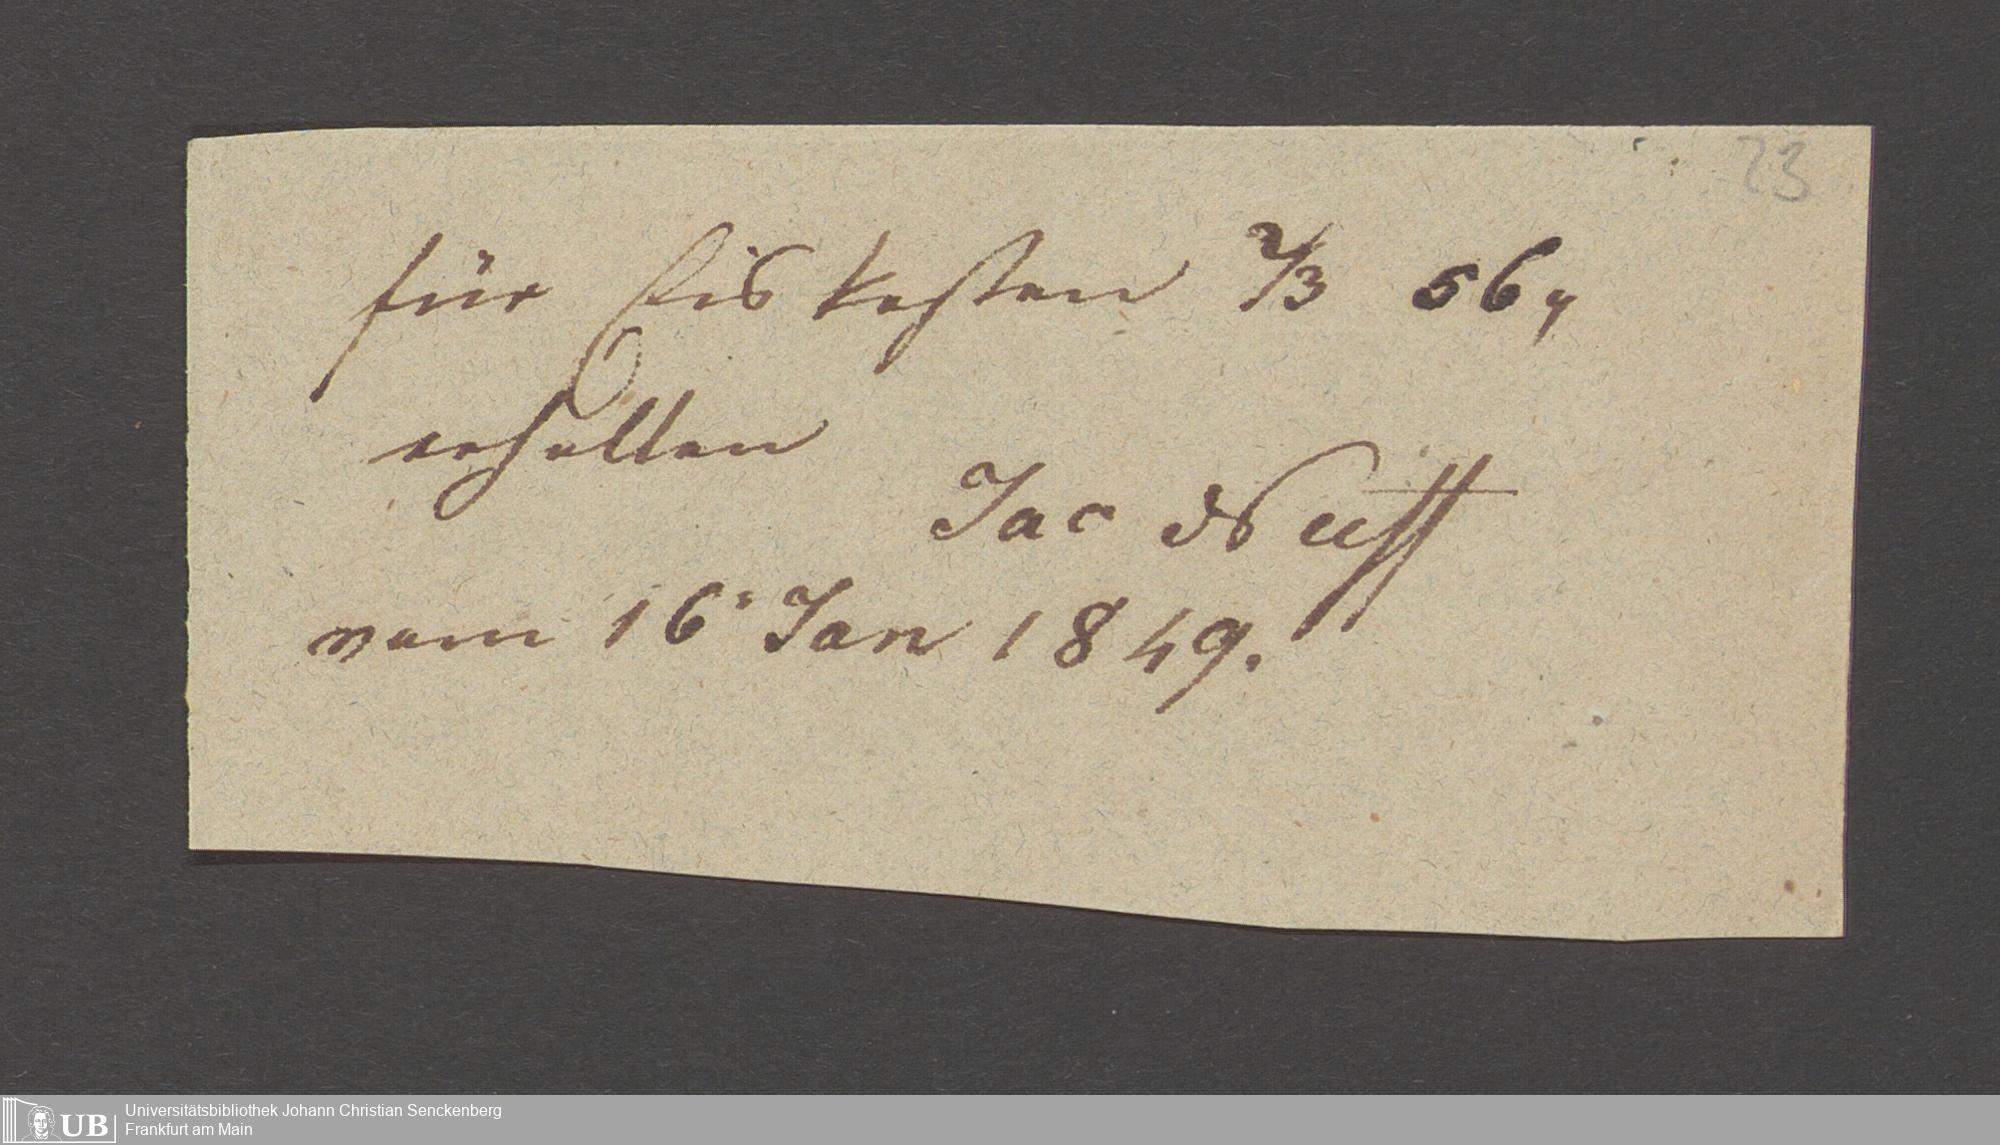 23
für Eis kosten 2/3 56,
erhalten
Jac Nuss
vom 16' Jan 1849.
UB
Universitätsbibliothek Johann Christian Senckenberg
Frankfurt am Main